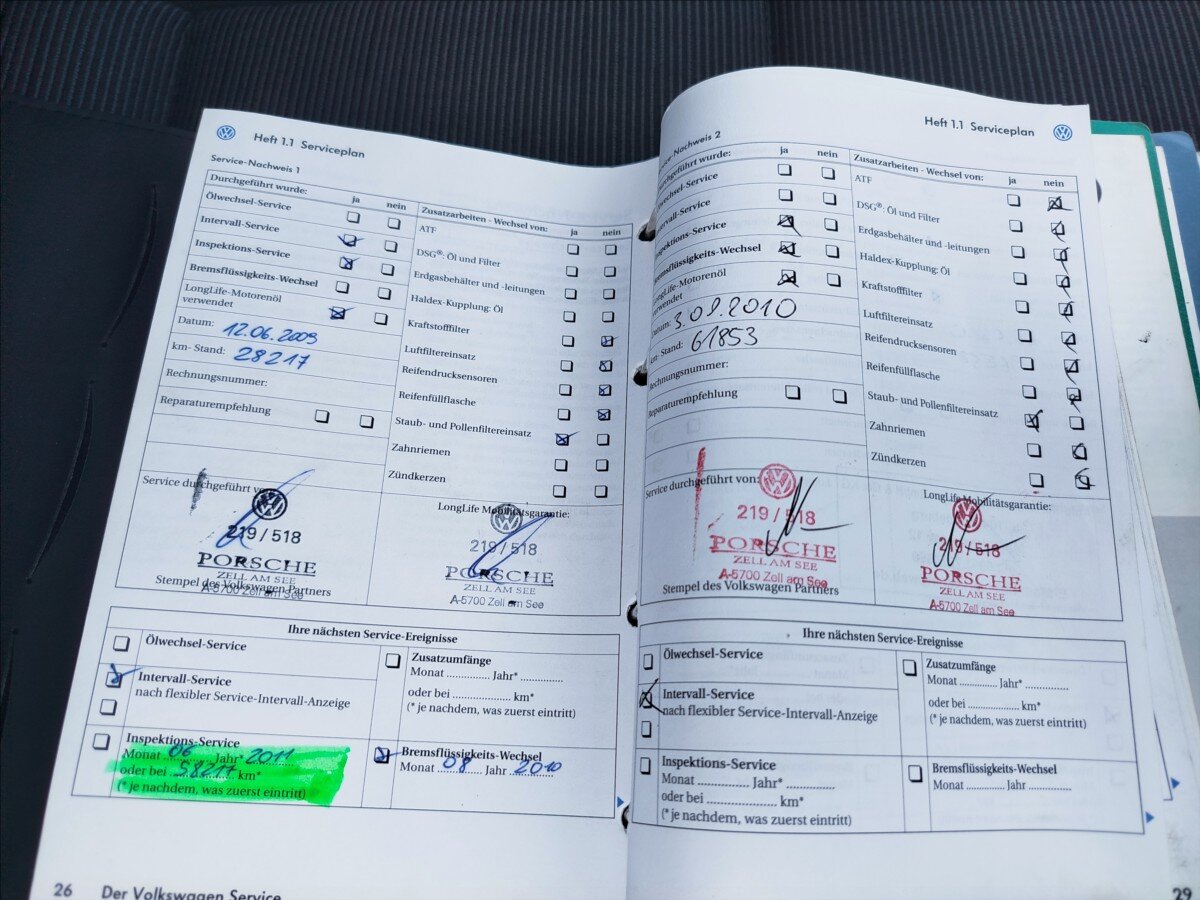 Heft 1.1 Serviceplan
Service-Nachweis 1
Durchgeführt wurde:
ja
nein
Ölwechsel-Service
Intervall-Service
Inspektions-Service
Bremsflüssigkeits-Wechsel
LongLife-Motorenöl
verwendet
Datum: 12.06.2009
km- Stand: 28217
Rechnungsnummer:
Reparaturempfehlung
Zusatzarbeiten - Wechsel von:
ja
nein
ATF
DSG®: Öl und Filter
Erdgasbehälter und -leitungen
Haldex-Kupplung: Öl
Kraftstofffilter
Luftfiltereinsatz
Reifendrucksensoren
Reifenfüllflasche
Staub- und Pollenfiltereinsatz
Zahnriemen
Zündkerzen
Service durchgeführt
219 / 518
PORSCHE
ZELL AM SEE
A-5700 Zell am See
Stempel des Volkswagen Partners
LongLife Mobilitätsgarantie:
219 / 518
PORSCHE
ZELL AM SEE
A-5700 Zell am See
Ihre nächsten Service-Ereignisse
Ölwechsel-Service
Intervall-Service
nach flexibler Service-Intervall-Anzeige
Inspektions-Service
Monat 06 Jahr* 2011
oder bei 58217 km*
(* je nachdem, was zuerst eintritt)
Zusatzumfänge
Monat .............. Jahr* ..............
oder bei .................... km*
(* je nachdem, was zuerst eintritt)
Bremsflüssigkeits-Wechsel
Monat 08 Jahr 2010
26 Der Volkswagen Service
Heft 1.1 Serviceplan
Service-Nachweis 2
Durchgeführt wurde:
ja
nein
Ölwechsel-Service
Intervall-Service
Inspektions-Service
Bremsflüssigkeits-Wechsel
LongLife-Motorenöl
verwendet
Datum:
km- Stand: 61853
Rechnungsnummer:
Reparaturempfehlung
Zusatzarbeiten - Wechsel von:
ja
nein
ATF
DSG®: Öl und Filter
Erdgasbehälter und -leitungen
Haldex-Kupplung: Öl
Kraftstofffilter
Luftfiltereinsatz
Reifendrucksensoren
Reifenfüllflasche
Staub- und Pollenfiltereinsatz
Zahnriemen
Zündkerzen
Service durchgeführt von:
219 / 518
PORSCHE
ZELL AM SEE
A-5700 Zell am See
Stempel des Volkswagen Partners
LongLife Mobilitätsgarantie:
219 / 518
PORSCHE
ZELL AM SEE
A-5700 Zell am See
Ihre nächsten Service-Ereignisse
Ölwechsel-Service
Intervall-Service
nach flexibler Service-Intervall-Anzeige
Inspektions-Service
Monat .............. Jahr* ..............
oder bei .................... km*
(* je nachdem, was zuerst eintritt)
Zusatzumfänge
Monat .............. Jahr* ..............
oder bei .................... km*
(* je nachdem, was zuerst eintritt)
Bremsflüssigkeits-Wechsel
Monat .............. Jahr ..............
29